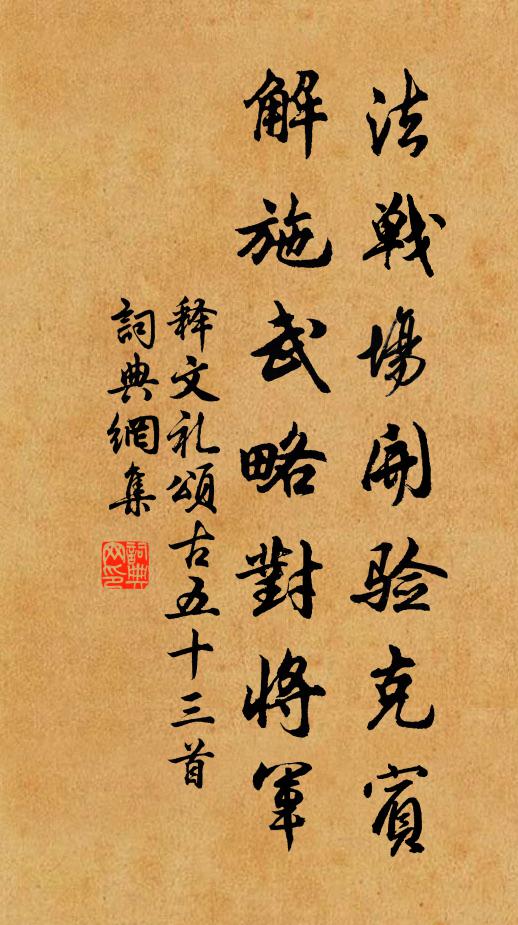 法戦場開验克賓
解施武略對將軍
释文礼頌古五十三首
詞典網集
詞典
网印